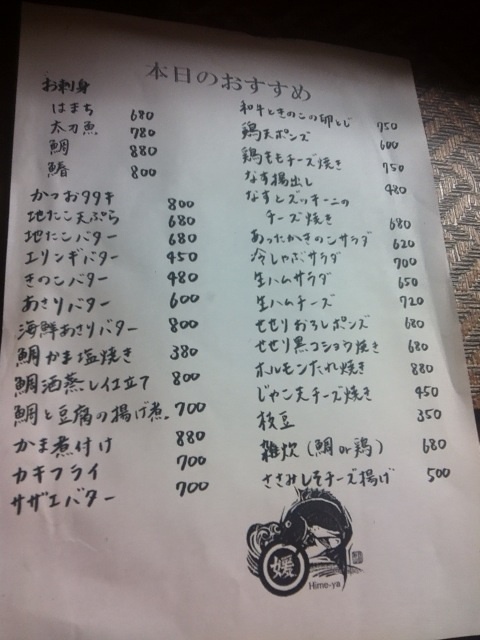 本日のおすすめ
お刺身
はまち 680
太刀魚 780
鯛 880
鰆 800
かつおタタキ 800
地たこ天ぷら 680
地たこバター 680
エリンギバター 450
きのこバター 480
あさりバター 600
海鮮あさりバター 800
鯛かま塩焼き 380
鯛酒蒸し仕立て 800
鯛と豆腐の揚げ煮 700
かま煮付け 880
カキフライ 700
サザエバター 700
和牛ときのこの卵とじ 750
鶏天ポンズ 600
鶏ももチーズ焼き 750
なす揚出し 480
なすとズッキーニの
チーズ焼き 680
あったかきのこサラダ 620
冷しゃぶサラダ 700
生ハムサラダ 650
生ハムチーズ 720
せせりおろしポンズ 680
せせり黒コショウ焼き 680
ホルモンたれ焼き 880
じゃこ天チーズ焼き 450
枝豆 350
雑炊(鯛or鶏) 680
ささみしそチーズ揚げ 500
媛
Hime-ya